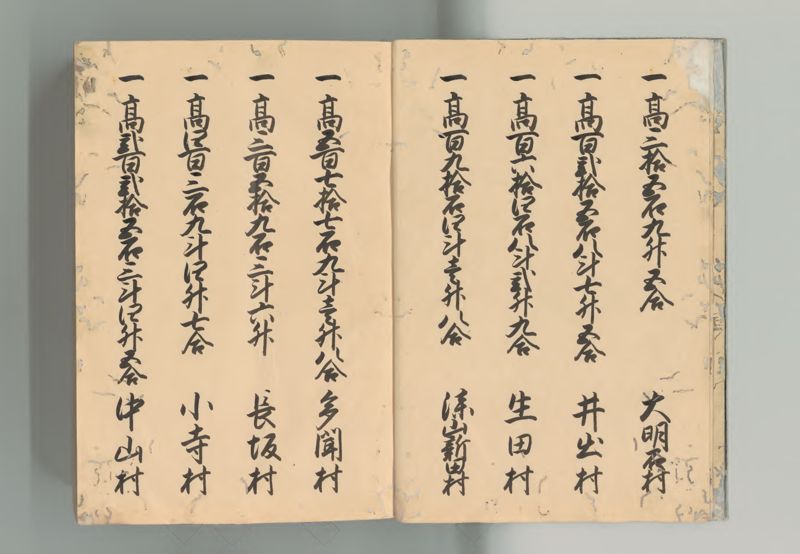 一高三拾五石九升五合 大明石村
一高百弐拾五石八斗七升五合 井出村
一高百六拾四石八斗弐升九合 生田村
一高百九拾石四斗壱升八合 山新田村
一高五百七拾七石九斗壱升八合 多聞村
一高三百五拾九石三斗六升 長坂村
一高四百三石九斗四升七合 小寺村
一高弐百弐拾五石三斗四升五合 中山村